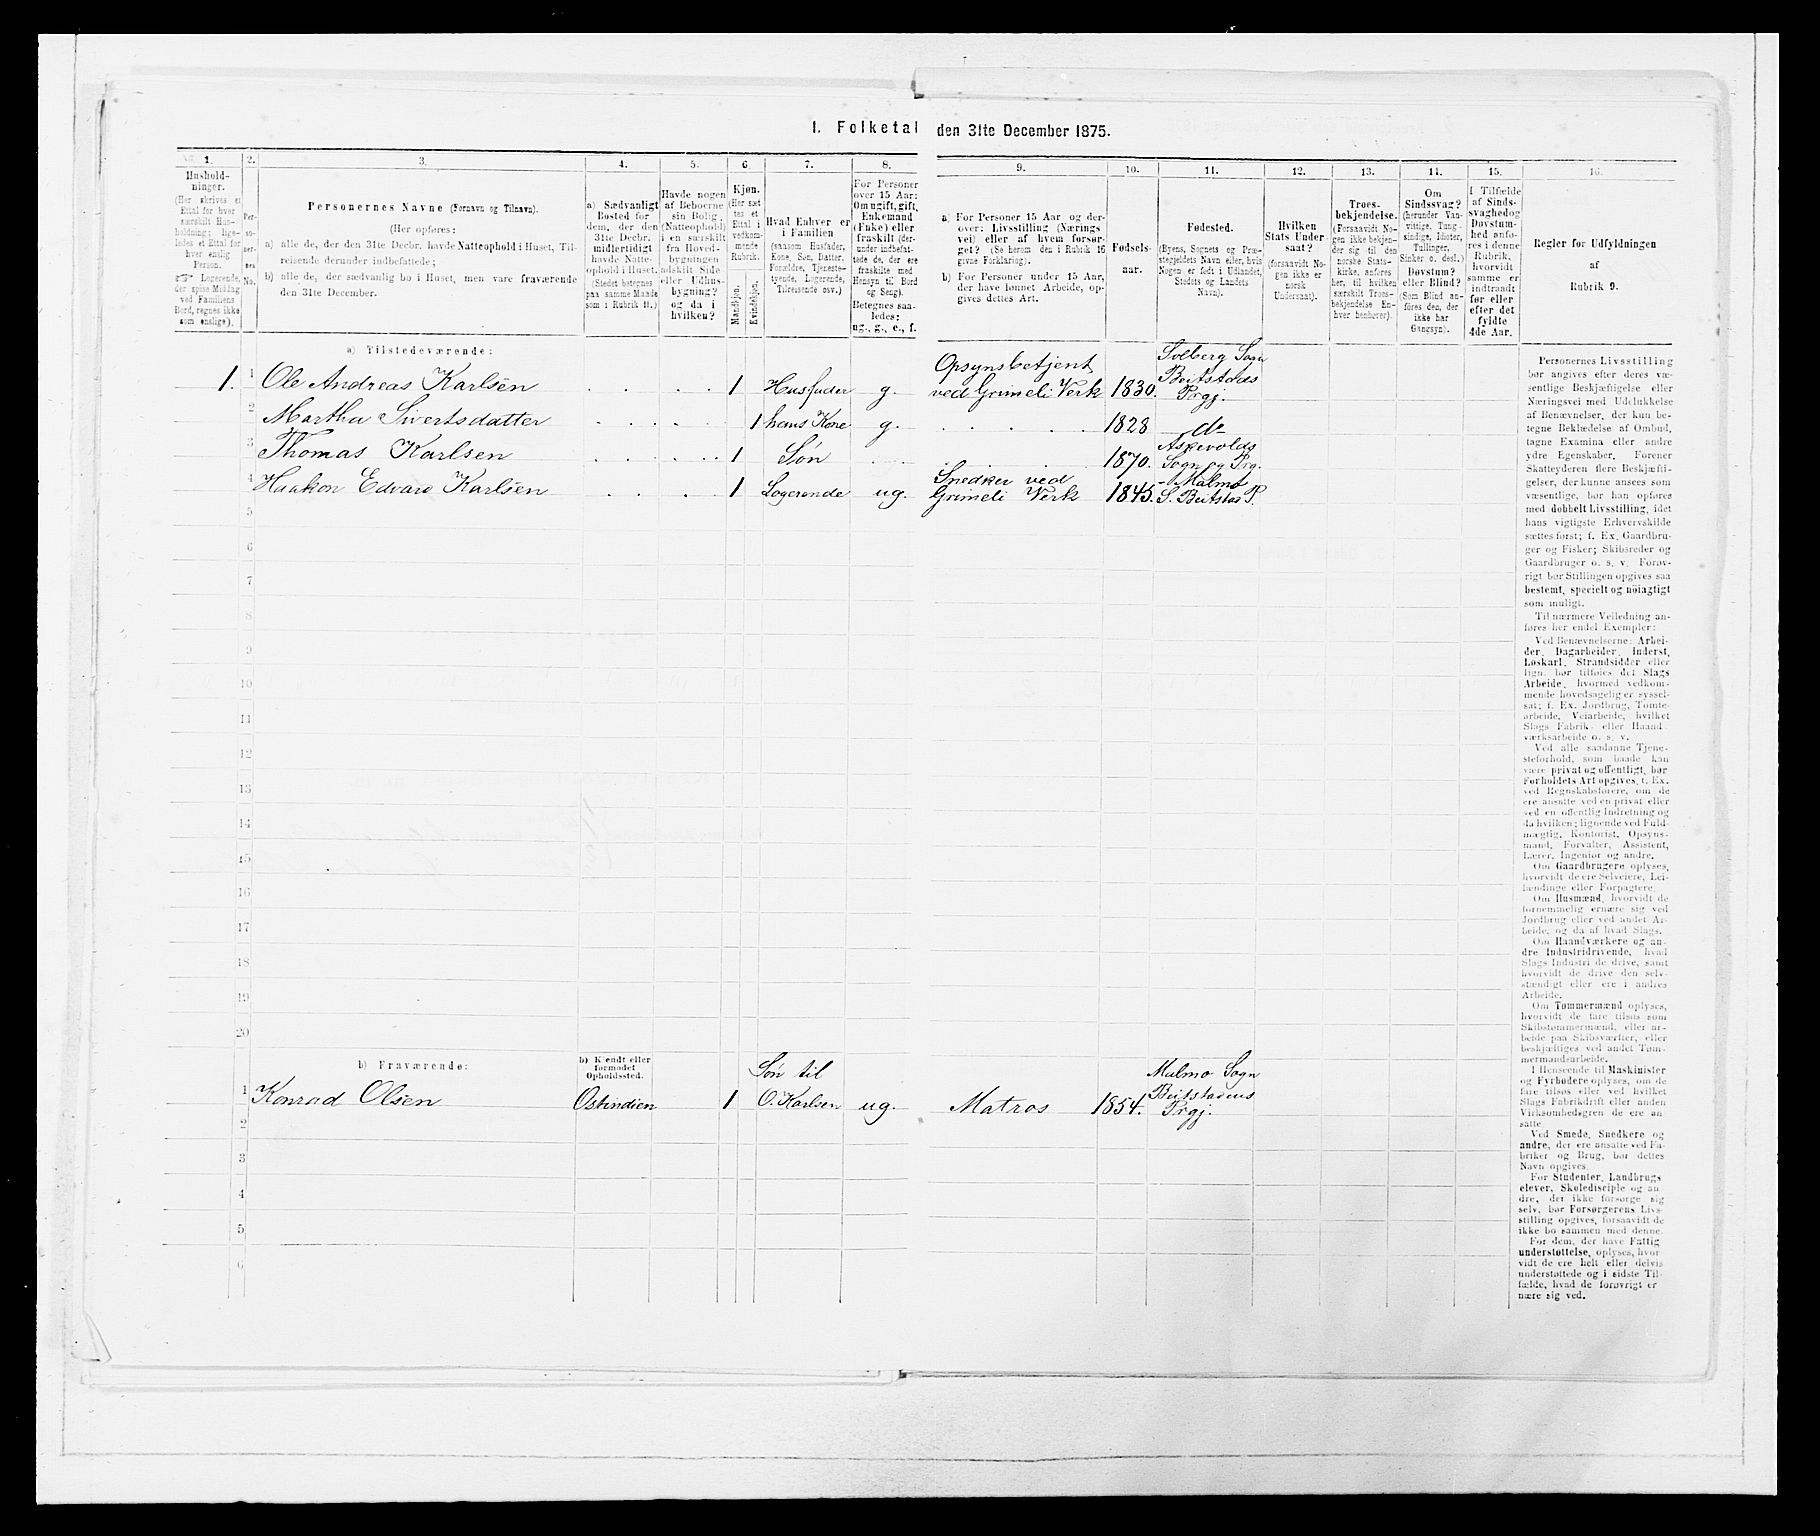 I. Folketal den 31te December 1875.
1.
Hushold-
ninger.
(Her skrives et
Ettal for hver
særskilt Hus-
holdning; lige-
ledes et Ettal for
hver enslig
Person.
Logerende,
der spise Middag
ved Familiens
Bord, regnes ikke
som enslige).
2.
Per-
so-
ner-
nes
No.
3.
Personernes Navne (Fornavn og Tilnavn).
(Her opføres:
a) alle de, der den 31te Decbr. havde Natteophold i Huset, Til-
reisende derunder indbefattede;
b) alle de, der sædvanlig bo i Huset, men vare fraværende
den 31te December.
4.
a) Sædvanligt
Bosted for
dem, der den
31te Decbr.
midlertidigt
havde Natte-
ophold i Huset.
(Stedet betegnes
paa samme Maade
som i Rubrik 11.)
5.
Havde nogen
af Beboerne
sin Bolig
(Natteophold)
i en særskilt
fra Hoved-
bygningen
adskilt Side-
eller Udhus-
bygning?
og da i
hvilken?
6.
Kjøn.
(Her sæt-
tes et
Ettal i
vedkom-
mende
Rubrik.
Mandkjøn.
Kvindekjøn.
7.
Hvad Enhver er
i Familien
(saasom Husfader,
Kone, Søn, Datter,
Forældre, Tjeneste-
tyende, Logerende,
Tilreisende osv.)
8.
For Personer
over 15 Aar:
Om ugift, gift,
Enkemand
(Enke) eller
fraskilt (der-
under indbefat-
tede de, der ere
fraskilte med
Hensyn til Bord
og Seng).
Betegnes saa-
ledes:
ug., g., e., f.
9.
a) For Personer 15 Aar og der-
over: Livsstilling (Nærings-
vei) eller af hvem forsør-
get? (Se herom den i Rubrik 16
givne Forklaring).
b) For Personer under 15 Aar,
der have lønnet Arbeide, op-
gives dettes Art.
10.
Fødsels-
aar.
11.
Fødested.
(Byens, Sognets og Præ-
stegjeldets Navn eller, hvis
Nogen er født i Udlandet,
Stedets og Landets
Navn).
12.
Hvilken
Stats Under-
saat?
(forsaavidt No-
gen ikke er
norsk
Undersaat).
13.
Troes-
bekjendelse.
(Forsaavidt No-
gen ikke bekjen-
der sig til den
norske Stats-
kirke, anføres
her, til hvilken
særskilt Troes-
bekjendelse En-
hver henhører).
14.
Om
Sindssvag?
(herunder Van-
vittige, Tung-
sindige, Idioter,
Tullinger,
Sinker o. desl.)
Døvstum?
eller Blind?
(Som Blind an-
føres den, der
ikke har
Gangsyn).
15.
I Tilfælde
af Sinds-
svaghed og
Døvstum-
hed anfø-
res i denne
Rubrik,
hvorvidt
samme er
indtraadt
før eller
efter det
fyldte
4de Aar.
16.
Regler for Udfyldningen
af
Rubrik 9.
a) Tilstedeværende:
1. 1 Ole Andreas Karlsen 1 Husfader g. Opsynsbetjent ved Grimeli Verk 1830. Solberg Sogn Beitstads Prgj.
2 Martha Sivertsdatter 1 hans Kone g. 1828 do
3 Thomas Karlsen 1 Søn 1870. Askevolds Sogn og Prg.
4 Haakon Edvard Karlsen 1 Logerende ug. Snedker ved Grimeli Verk 1845. Malmo S. Beitstad P.
5
6
7
8
9
10
11
12
13
14
15
16
17
18
19
20
b) Fraværende:
b) Kjendt eller
formodet
Opholdssted.
1 Konrad Olsen Ostindien 1 Søn til O. Karlsen ug. Matros 1854. Malmo Sogn Beitstadens Prgj.
2
3
4
5
6
Personernes Livsstilling
bør angives efter deres væ-
sentlige Beskjæftigelse eller
Næringsvei med Udelukkelse
af Benævnelser, der kun be-
tegne Beklædelse af Ombud,
tagne Examina eller andre
ydre Egenskaber. Forener
Skatteyderen flere Beskjæfti-
gelser, der kunne ansees som
væsentlige, bør han opføres
med dobbelt Livsstilling, idet
hans vigtigste Erhvervskilde
sættes først; f. Ex. Gaardbru-
ger og Fisker; Skibsreder og
Gaardbruger o. s. v. Forøv-
rigt bør Stillingen opgives saa
bestemt, specielt og nøiagtigt
som muligt.
Til nærmere Veiledning an-
føres her endel Exempler:
Ved Benævnelserne: Arbei-
der, Dagarbeider, Inderst,
Løskarl, Strandsidder eller
lign. bør tilføies det Slags
Arbeide, hvormed vedkom-
mende hovedsagelig er syssel-
sat; f. Ex. Jordbrug, Tomte-
arbeide, Veiarbeide, hvilket
Slags Fabrik- eller Haand-
værksarbeide o. s. v.
Ved alle saadanne Tjene-
steforhold, som baade kan
være privat og offentligt, bør
Forholdets Art opgives, f. Ex.
ved Regnskabsførere, om de
ere ansatte ved en privat eller
ved en offentlig Indretning og
da hvilken; lignende ved Fuld-
mægtig, Kontorist, Opsyns-
mand, Forvalter, Assistent,
Lærer, Ingeniør og andre.
Om Gaardbrugere oplyses,
hvorvidt de ere Selveiere, Lei-
lændinge eller Forpagtere.
Om Husmænd, hvorvidt de
fornemmelig ernære sig ved
Jordbrug eller ved andet Ar-
beide, og da af hvad Slags.
Om Haandværkere og an-
dre Industridrivende, hvad
Slags Industri de drive, samt
hvorvidt de drive den selv-
stændigt eller ere i andres
Arbeide.
Om Tømmermænd oplyses,
hvorvidt de fare tilsøs som
Skibstømmermænd, eller ar-
beide paa Skibsværfter, eller
beskjæftiges ved andet Tøm-
mermandsarbeide.
I Henseende til Maskinister
og Fyrbødere oplyses, om de
fare tilsøs eller ved hvilket
Slags Fabrikdrift eller anden
Virksomhedsgren de ere an-
satte.
Ved Smede, Snedkere og
andre, der ere ansatte ved Fa-
briker og Brug, bør dettes
Navn opgives.
For Studenter, Landbrugs-
elever, Skoledisciple og an-
dre, der ikke forsørge sig
selv, bør Forsørgerens Livs-
stilling opgives, forsaavidt de
ikke bo sammen med denne.
For dem, der have Fattig-
understøttelse, oplyses, hvor-
vidt de ere helt eller delvis
understøttede og i sidste Til-
fælde, hvad de forøvrigt er-
nære sig ved.